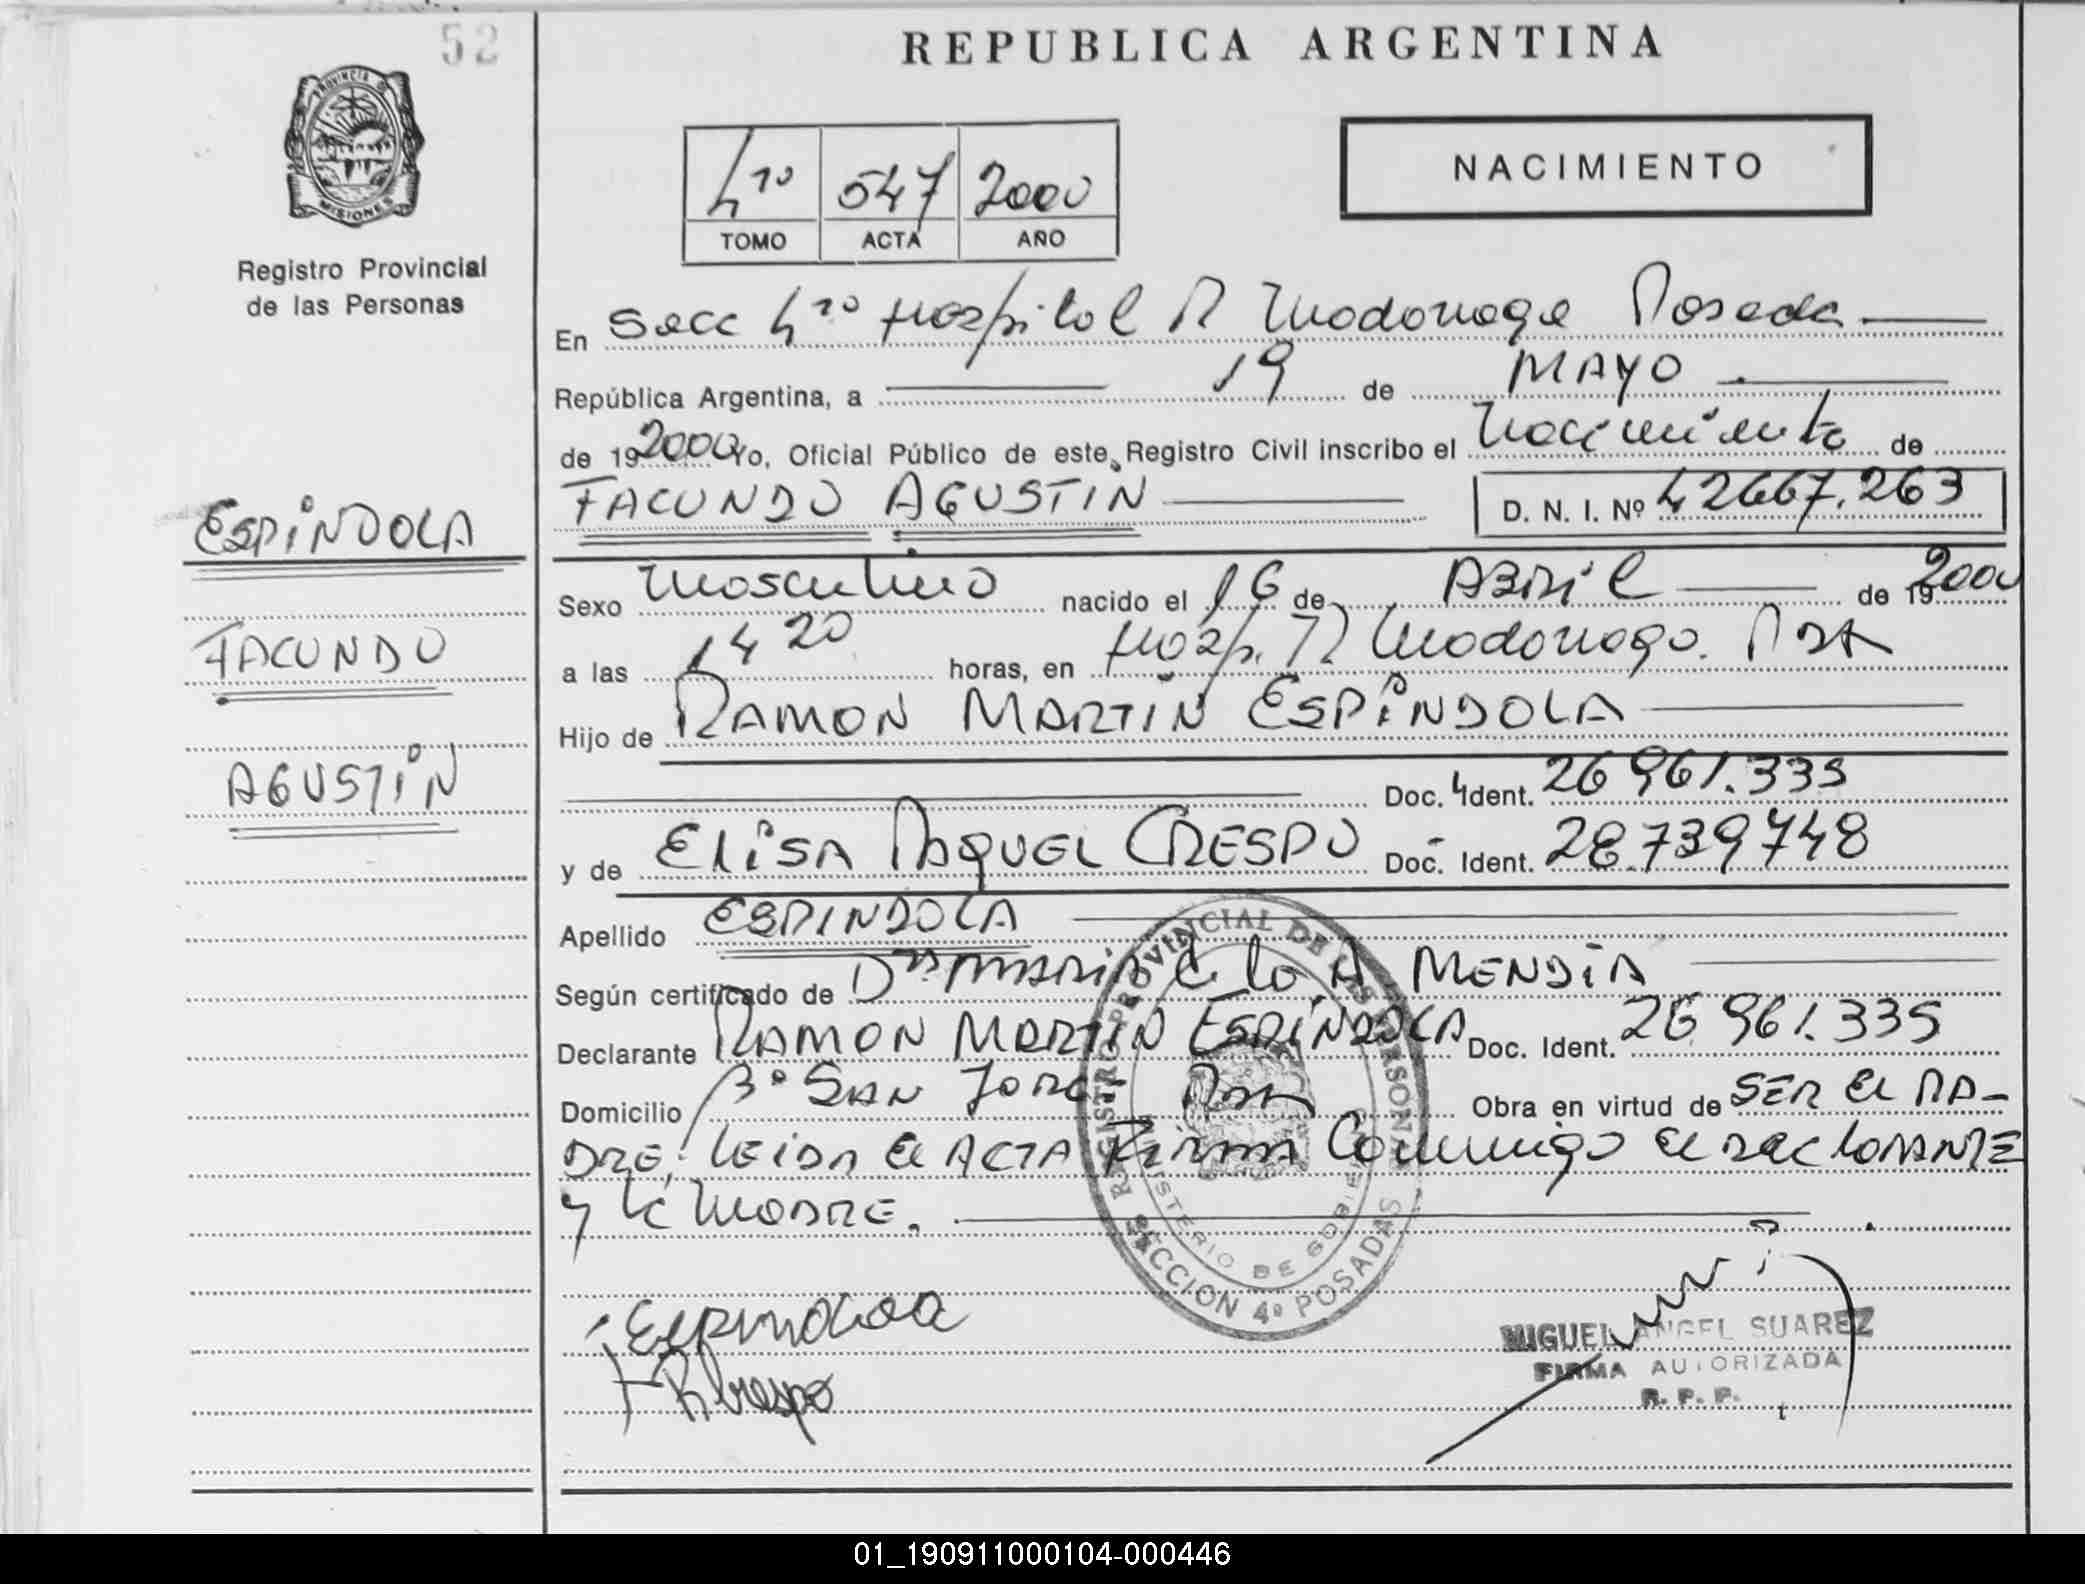 52
REPUBLICA ARGENTINA
PROVINCIA DE
MISIONES
Registro Provincial
de las Personas
4to 547 2000
TOMO ACTA AÑO
NACIMIENTO
En Secc 4to Hospital R Madariaga Posadas
República Argentina, a 19 de MAYO
de 19 2000 Yo, Oficial Público de este Registro Civil inscribo el Nacimiento de
FACUNDO AGUSTIN D. N. I. Nº 42667.263
ESPíNDOLA
FACUNDO
AGUSTíN
Sexo Masculino nacido el 16 de ABRIL de 19 2000
a las 14 20 horas, en Hosp. R Madariaga. Pdas
Hijo de RAMON MARTIN ESPíNDOLA
Doc. Ident. 26 961.335
y de ELISA RAQUEL CRESPO Doc. Ident. 28.739748
Apellido ESPINDOLA
Según certificado de Dra MARIA de lo A MENDIA
Declarante RAMON MARTIN ESPíNDOLA Doc. Ident. 26 961.335
Domicilio Bº SAN JORGE Pdas Obra en virtud de SER EL PA-
DRE. LEIDA El ACTA FIRMA Conmigo El DEClARANTE
y la MADRE.
REGISTRO PROVINCIAL DE LAS PERSONAS
MINISTERIO DE GOBIERNO
SECCION 4º POSADAS
Espindola
RCrespo
MIGUEL ANGEL SUAREZ
FIRMA AUTORIZADA
R. P. P.
01_190911000104-000446